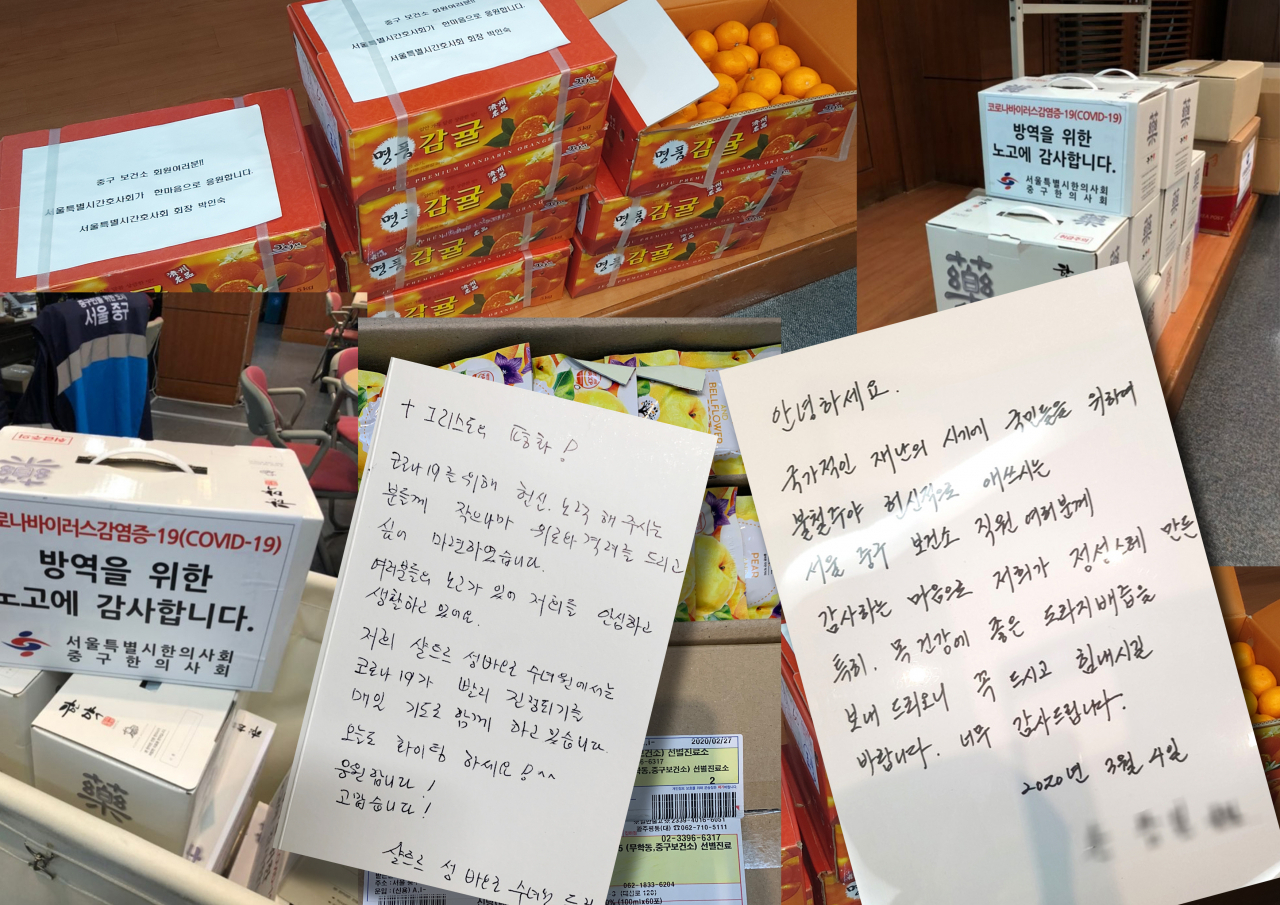 중구 보건소 회원여러분!!
서울특별시간호사회가 한마음으로 응원합니다.
서울특별시간호사회 회장 박인숙
중구 보건소 회원여러분!!
서울특별시간호사회가 한마음으로 응원합니다.
서울특별시간호사회 회장 박인숙
명품 감귤
JEJU PREMIUM MANDARIN ORANGE
명품 감귤
명품 감귤
감귤
명품 감귤
JEJU PREMIUM MANDARIN ORANGE
명품 감귤
명품 감귤
코로나바이러스감염증-19(COVID-19)
방역을 위한
노고에 감사합니다.
서울특별시한의사회
중구한의사회
藥
서울 중구
藥
로나바이러스감염증-19(COVID-19)
방역을 위한
노고에 감사합니다.
서울특별시한의사회
중구한의사회
한약
藥
+ 그리스도의 평화!
코로나19를 위해 헌신. 노고 해 주시는
분들께 작으나마 위로와 격려를 드리고
싶어 마련하였습니다.
여러분들의 노고가 있어 저희를 안심하고
생활하고 있어요.
저희 샬트르 성바오로 수녀원에서는
코로나19가 빨리 진정되기를
매일 기도로 함께 하고 있습니다.
오늘도 화이팅 하세요!^^
응원합니다!
고맙습니다!
샬트르 성 바오로 수녀원 드림
BELLFLOWER
PEAR
안녕하세요.
국가적인 재난의 시기에 국민들을 위하여
불철주야 헌신적으로 애쓰시는
서울 중구 보건소 직원 여러분께
감사하는 마음으로 저희가 정성스레 만든
특히, 목건강에 좋은 도라지배즙을
보내 드리오니 꼭 드시고 힘내시길
바랍니다. 너무 감사드립니다.
2020년 3월 4일
2020/02/27
보건소) 선별진료소
중구보건소) 선별진료소
2
062-710-5111
02-3396-6317
(무학동,중구보건소) 선별진료
062-1833-6204
(100mlx60포)